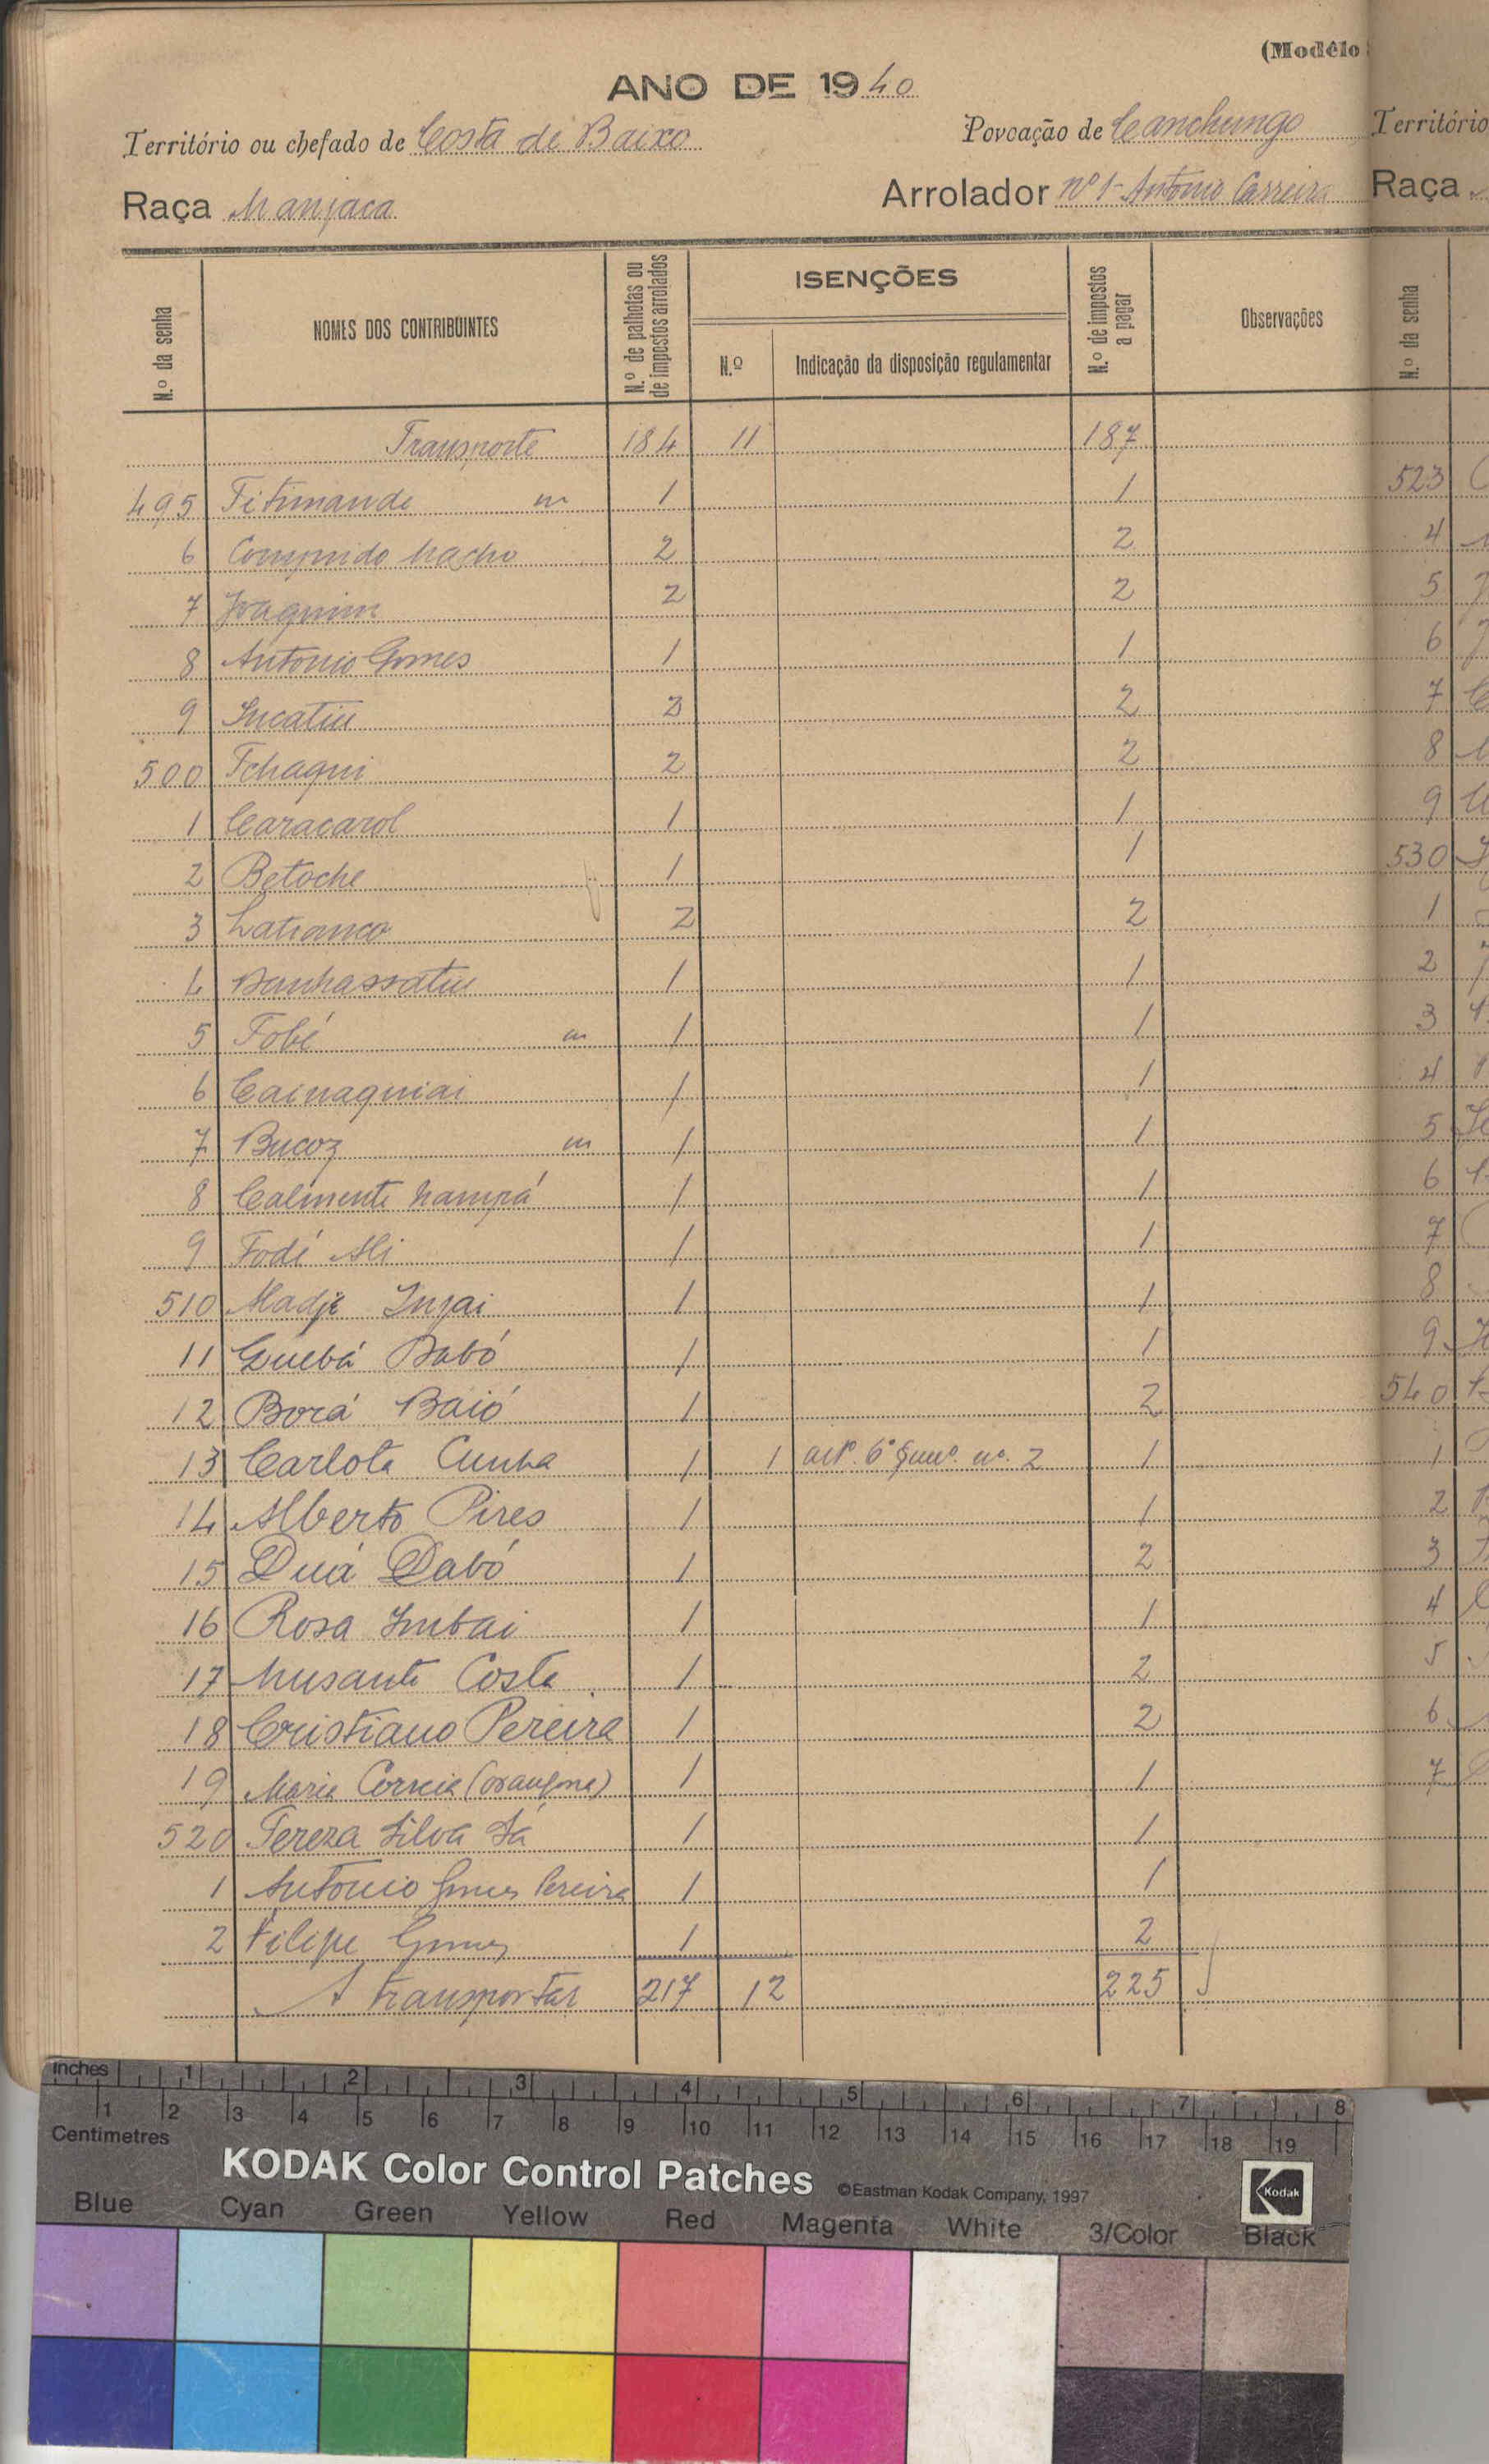 (Modêlo
ANO DE 1940
Território ou chefado de Costa de Baixo Povoação de Canchungo
Raça Manjaca Arrolador nº 1 - Antonio Carreira
N.º da senha NOMES DOS CONTRIBUINTES N.º de palhotas ou de impostos arrolados ISENÇÕES N.º Indicação da disposição regulamentar N.º de impostos a pagar Observações
Transporte 184 11 187
495 Titimande m 1 1
6 Comprido Nacho 2 2
7 Joaquim 2 2
8 Antonio Gomes 1 1
9 Incatiu 2
500 Tchaqui 2 2
1 Caracarol 1 1
2 Betoche 1 1
3 2 2
4 1 1
5 Tobé m 1 1
6 Cainaquiai 1 1
7 Bucoz m 1 1
8 Calmente Nampá 1 1
9 Fodé Ali 1 1
510 Madje Injai 1 1
11 Quebá Dabó 1 1
12 Borá Baió 1 2
13 Carlota Cunha 1 1 artº. 6º § unº. nº. 2 1
14 Alberto Pires 1 1
15 Duá Dabó 1 2
16 Rosa Imbai 1 1
17 Musante Costa 1 2
18 Cristiano Pereira 1 2
19 Maria Correia 1 1
520 Tereza Silva Sá 1 1
1 Antonio Gomes Pereira 1 1
2 Filipe Gomes 1 2
A transportar 217 12 225
Território
Raça
N.º da senha
523
4
5
6
7
8
9
530
1
2
3
4
5
6
7
8
9
540
1
2
3
4
5
6
7
inches 1 2 3 4 5 6 7 8
1 2 3 4 5 6 7 8 9 10 11 12 13 14 15 16 17 18 19
Centimetres
KODAK Color Control Patches ©Eastman Kodak Company, 1997 Kodak
Blue Cyan Green Yellow Red Magenta White 3/Color Black